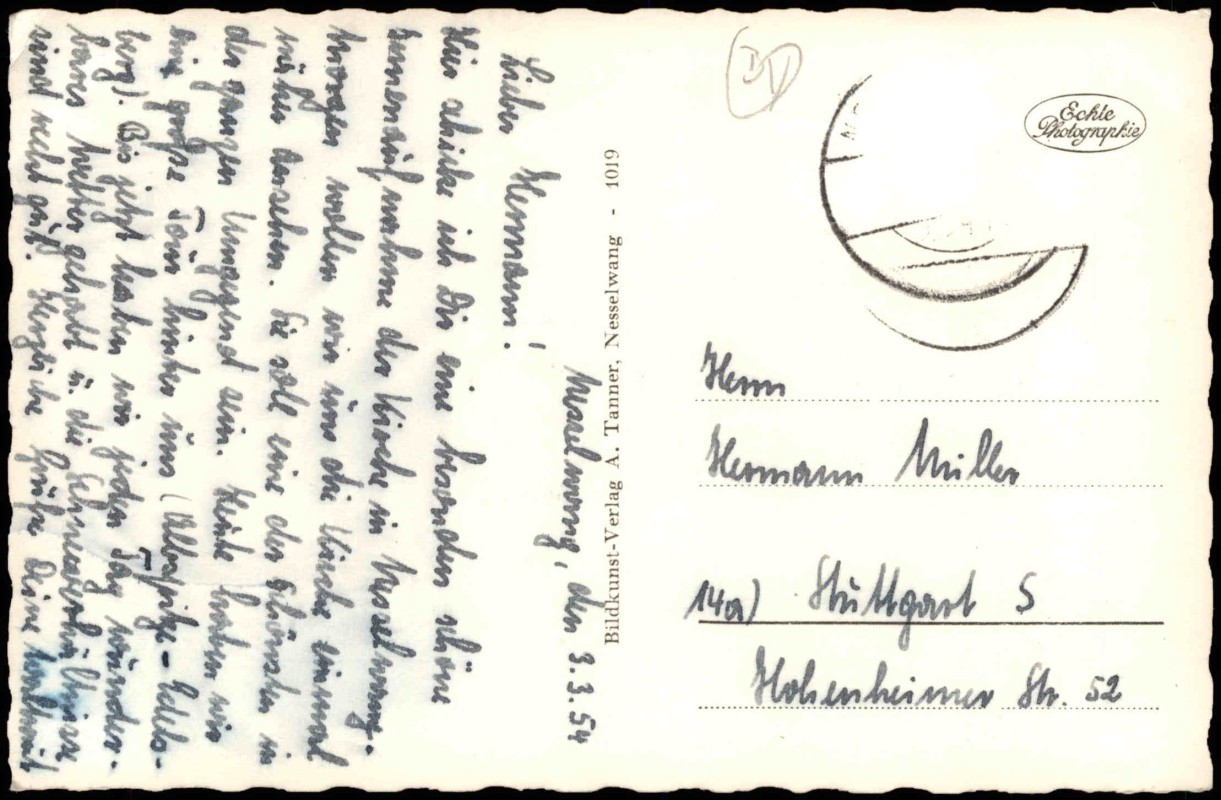 Nesselwang, den 3.3.54
Lieber Hermann!
Hier schicke ich Dir eine besonders schöne
Innenaufnahme der Kirche in Nesselwang.
Morgen wollen wir uns die Kirche einmal
näher ansehen. Sie soll eine der schönsten in
der ganzen Umgegend sein. Heute haben wir
eine große Tour hinter uns (Alpspitze - Edels-
berg). Bis jetzt haben wir jeden Tag wunder-
bares Wetter gehabt u. die Schneeverhältnisse
sind recht gut. Herzliche Grüße Deine
Bildkunst-Verlag A. Tanner, Nesselwang - 1019
Echte
Photographie
Herrn
Hermann Müller
14a) Stuttgart S
Hohenheimer Str. 52